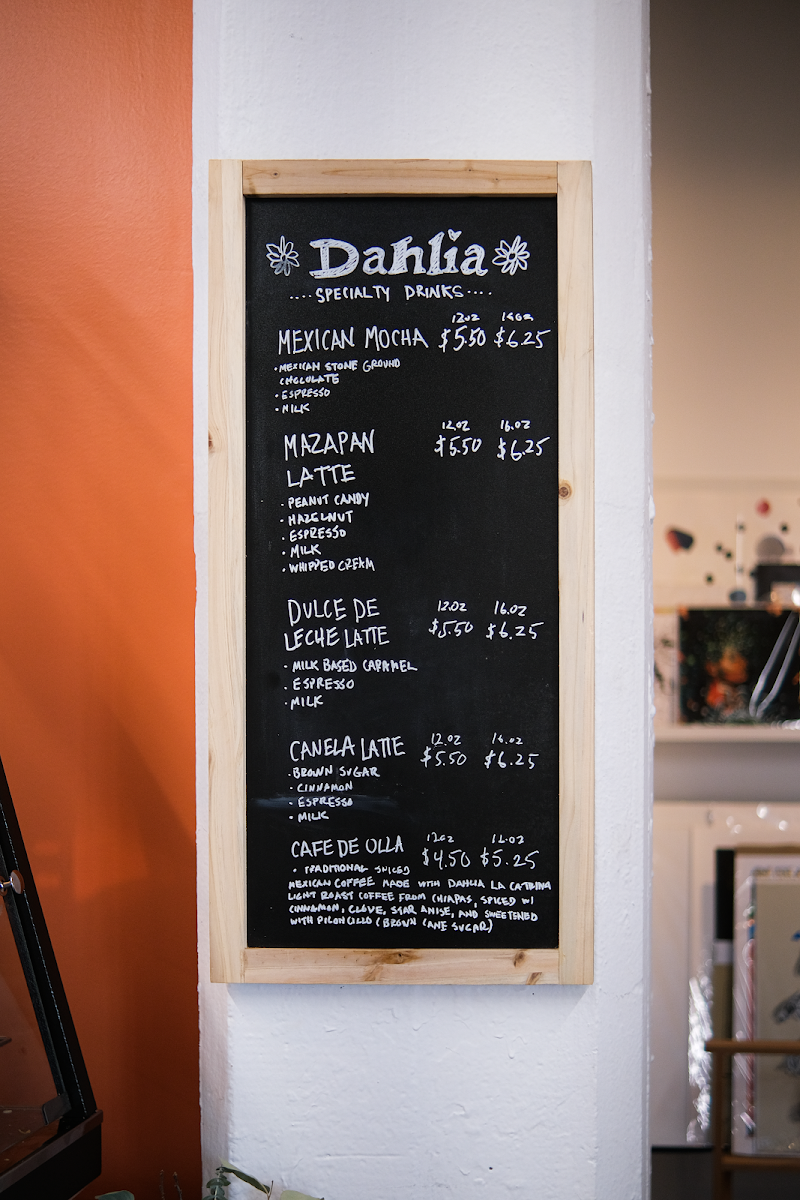 Dahlia
....SPECIALTY DRINKS....
12oz 16oz
MEXICAN MOCHA $5.50 $6.25
• MEXICAN STONE GROUND
CHOCOLATE
• ESPRESSO
• MILK
12oz 16.oz
MAZAPAN $5.50 $6.25
LATTE
• PEANUT CANDY
• HAZELNUT
• ESPRESSO
• MILK
• WHIPPED CREAM
12.oz 16.oz
DULCE DE $5.50 $6.25
LECHE LATTE
• MILK BASED CARAMEL
• ESPRESSO
• MILK
12.oz 16.oz
CANELA LATTE $5.50 $6.25
• BROWN SUGAR
• CINNAMON
• ESPRESSO
• MILK
12oz 16.oz
CAFE DE OLLA $4.50 $5.25
• TRADITIONAL SPICED
MEXICAN COFFEE MADE WITH DAHLIA LA CATRINA
LIGHT ROAST COFFEE FROM CHIAPAS, SPICED W/
CINNAMON, CLOVE, STAR ANISE, AND SWEETENED
WITH PILONCILLO (BROWN CANE SUGAR)